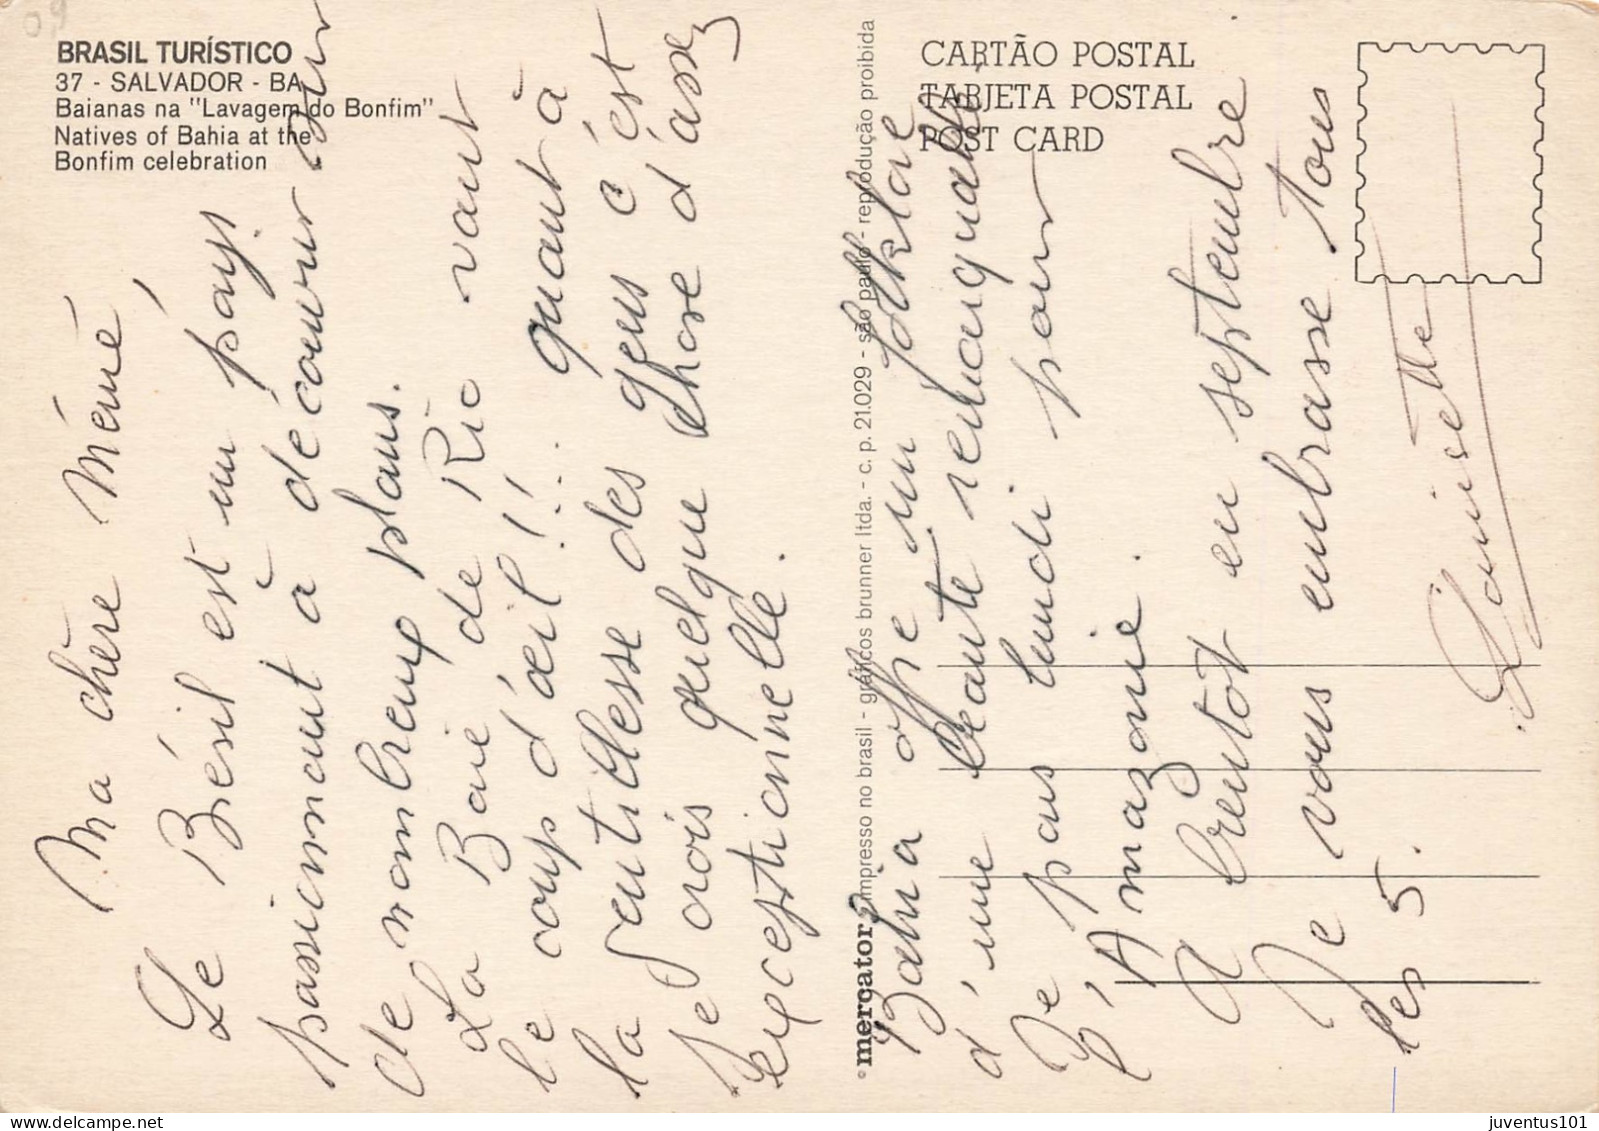 09
BRASIL TURÍSTICO
37 - SALVADOR - BA
Baianas na "Lavagem do Bonfim"
Natives of Bahia at the
Bonfim celebration
CARTÃO POSTAL
TARJETA POSTAL
POST CARD
© mercator impresso no brasil - gráficos brunner ltda. - c. p. 21.029 - são paulo - reprodução proibida
Ma chère Mémé,
Le Brésil est un pays
passionnant à découvrir sur
de nombreux plans.
La Baie de Rio vaut
le coup d'œil !! quant à
la gentillesse des gens c'est
je crois quelque chose d'assez
exceptionnelle.
Bahia offre un folklore
d'une beauté remarquable
Je pars lundi pour
l'Amazonie.
A bientôt en septembre
Je vous embrasse tous
les 5.
Louisette
juventus101